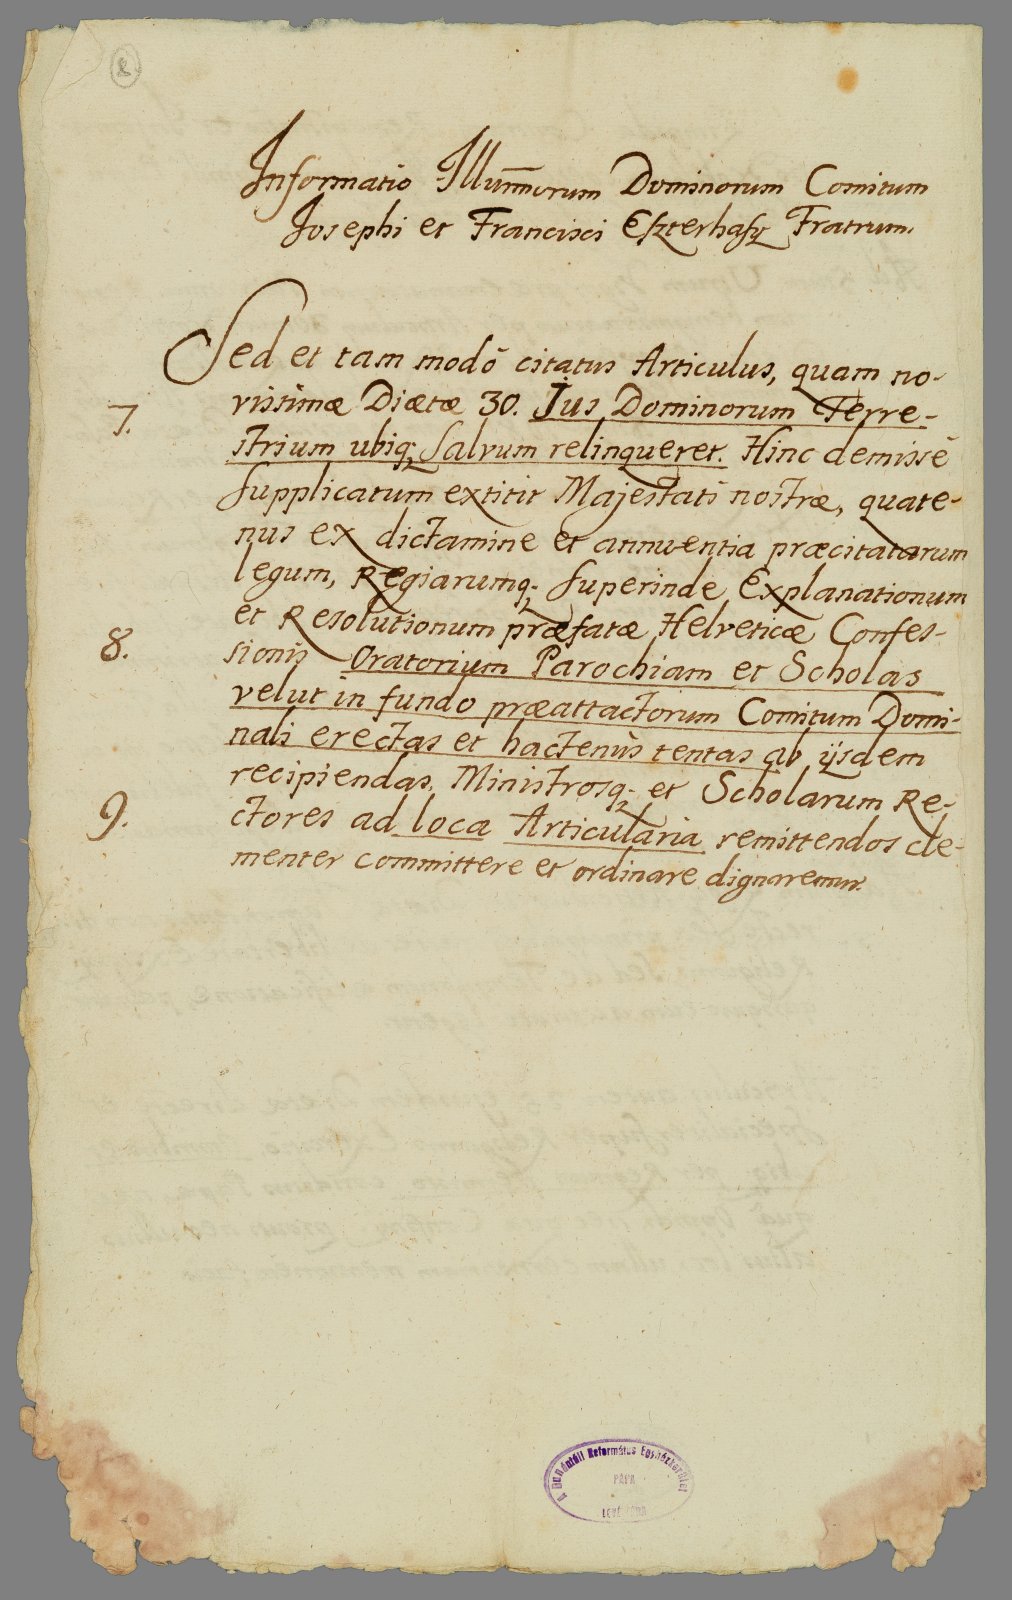 2
Informatio Illum̅morum Dominorum Comitum
Josephi et Francisci Eszterhasy Fratrum.
Sed et tam modò citatus Articulus, quam no-
7. vissimæ Diætæ 30. Jus Dominorum Terre-
strium ubiq; salvum relinqueret. Hinc demisse
supplicatum extitit Majestati nostræ, quate-
nus ex dictamine et annuentia præcitatarum
legum, Regiarumq; superinde Explanationum
et Resolutionum præfatæ Helveticæ Confes-
8. sionis Oratorium Parochiam et Scholas
velut in fundo præattactorum Comitum Domi-
nali erectas et hactenùs tentas ab ijsdem
recipiendas, Ministrosq; et Scholarum Re-
9. ctores ad loca Articularia remittendos cle-
menter committere et ordinare dignaremur.
A Dunántúli Református Egyházkerület
PÁPA
LEVÉLTÁRA